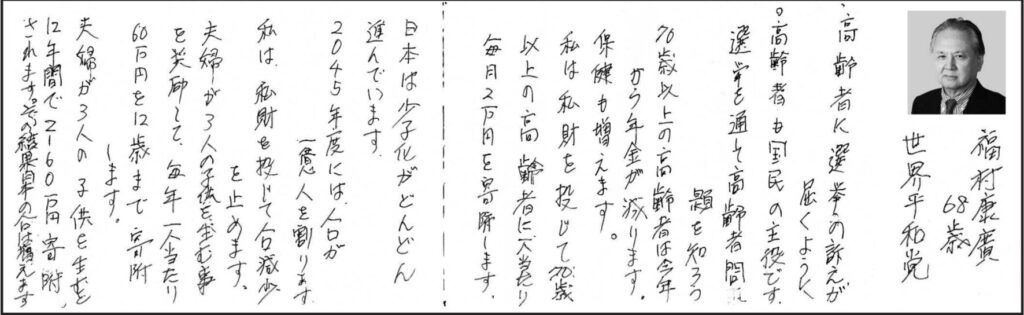 福村康廣
68歳
世界平和党
・高齢者に選挙の訴えが
届くように
。高齢者も国民の主役です。
選挙を通して高齢者問
題を知ろう
70歳以上の高齢者は今年
から年金が減ります。
保健も増えます。
私は私財を投じて70歳
以上の高齢者に一人当たり
毎月2万円を寄附します。
日本は少子化がどんどん
進んでいます。
2045年度には人口が
一億人を割ります。
私は、私財を投じて人口減少
を止めます。
夫婦が3人の子供を生む事
を奨励して、毎年一人当たり
60万円を12歳まで寄附
します。
夫婦が3人の子供を生むと
12年間で2160万円寄附
されます。その結果日本の人口は増えます